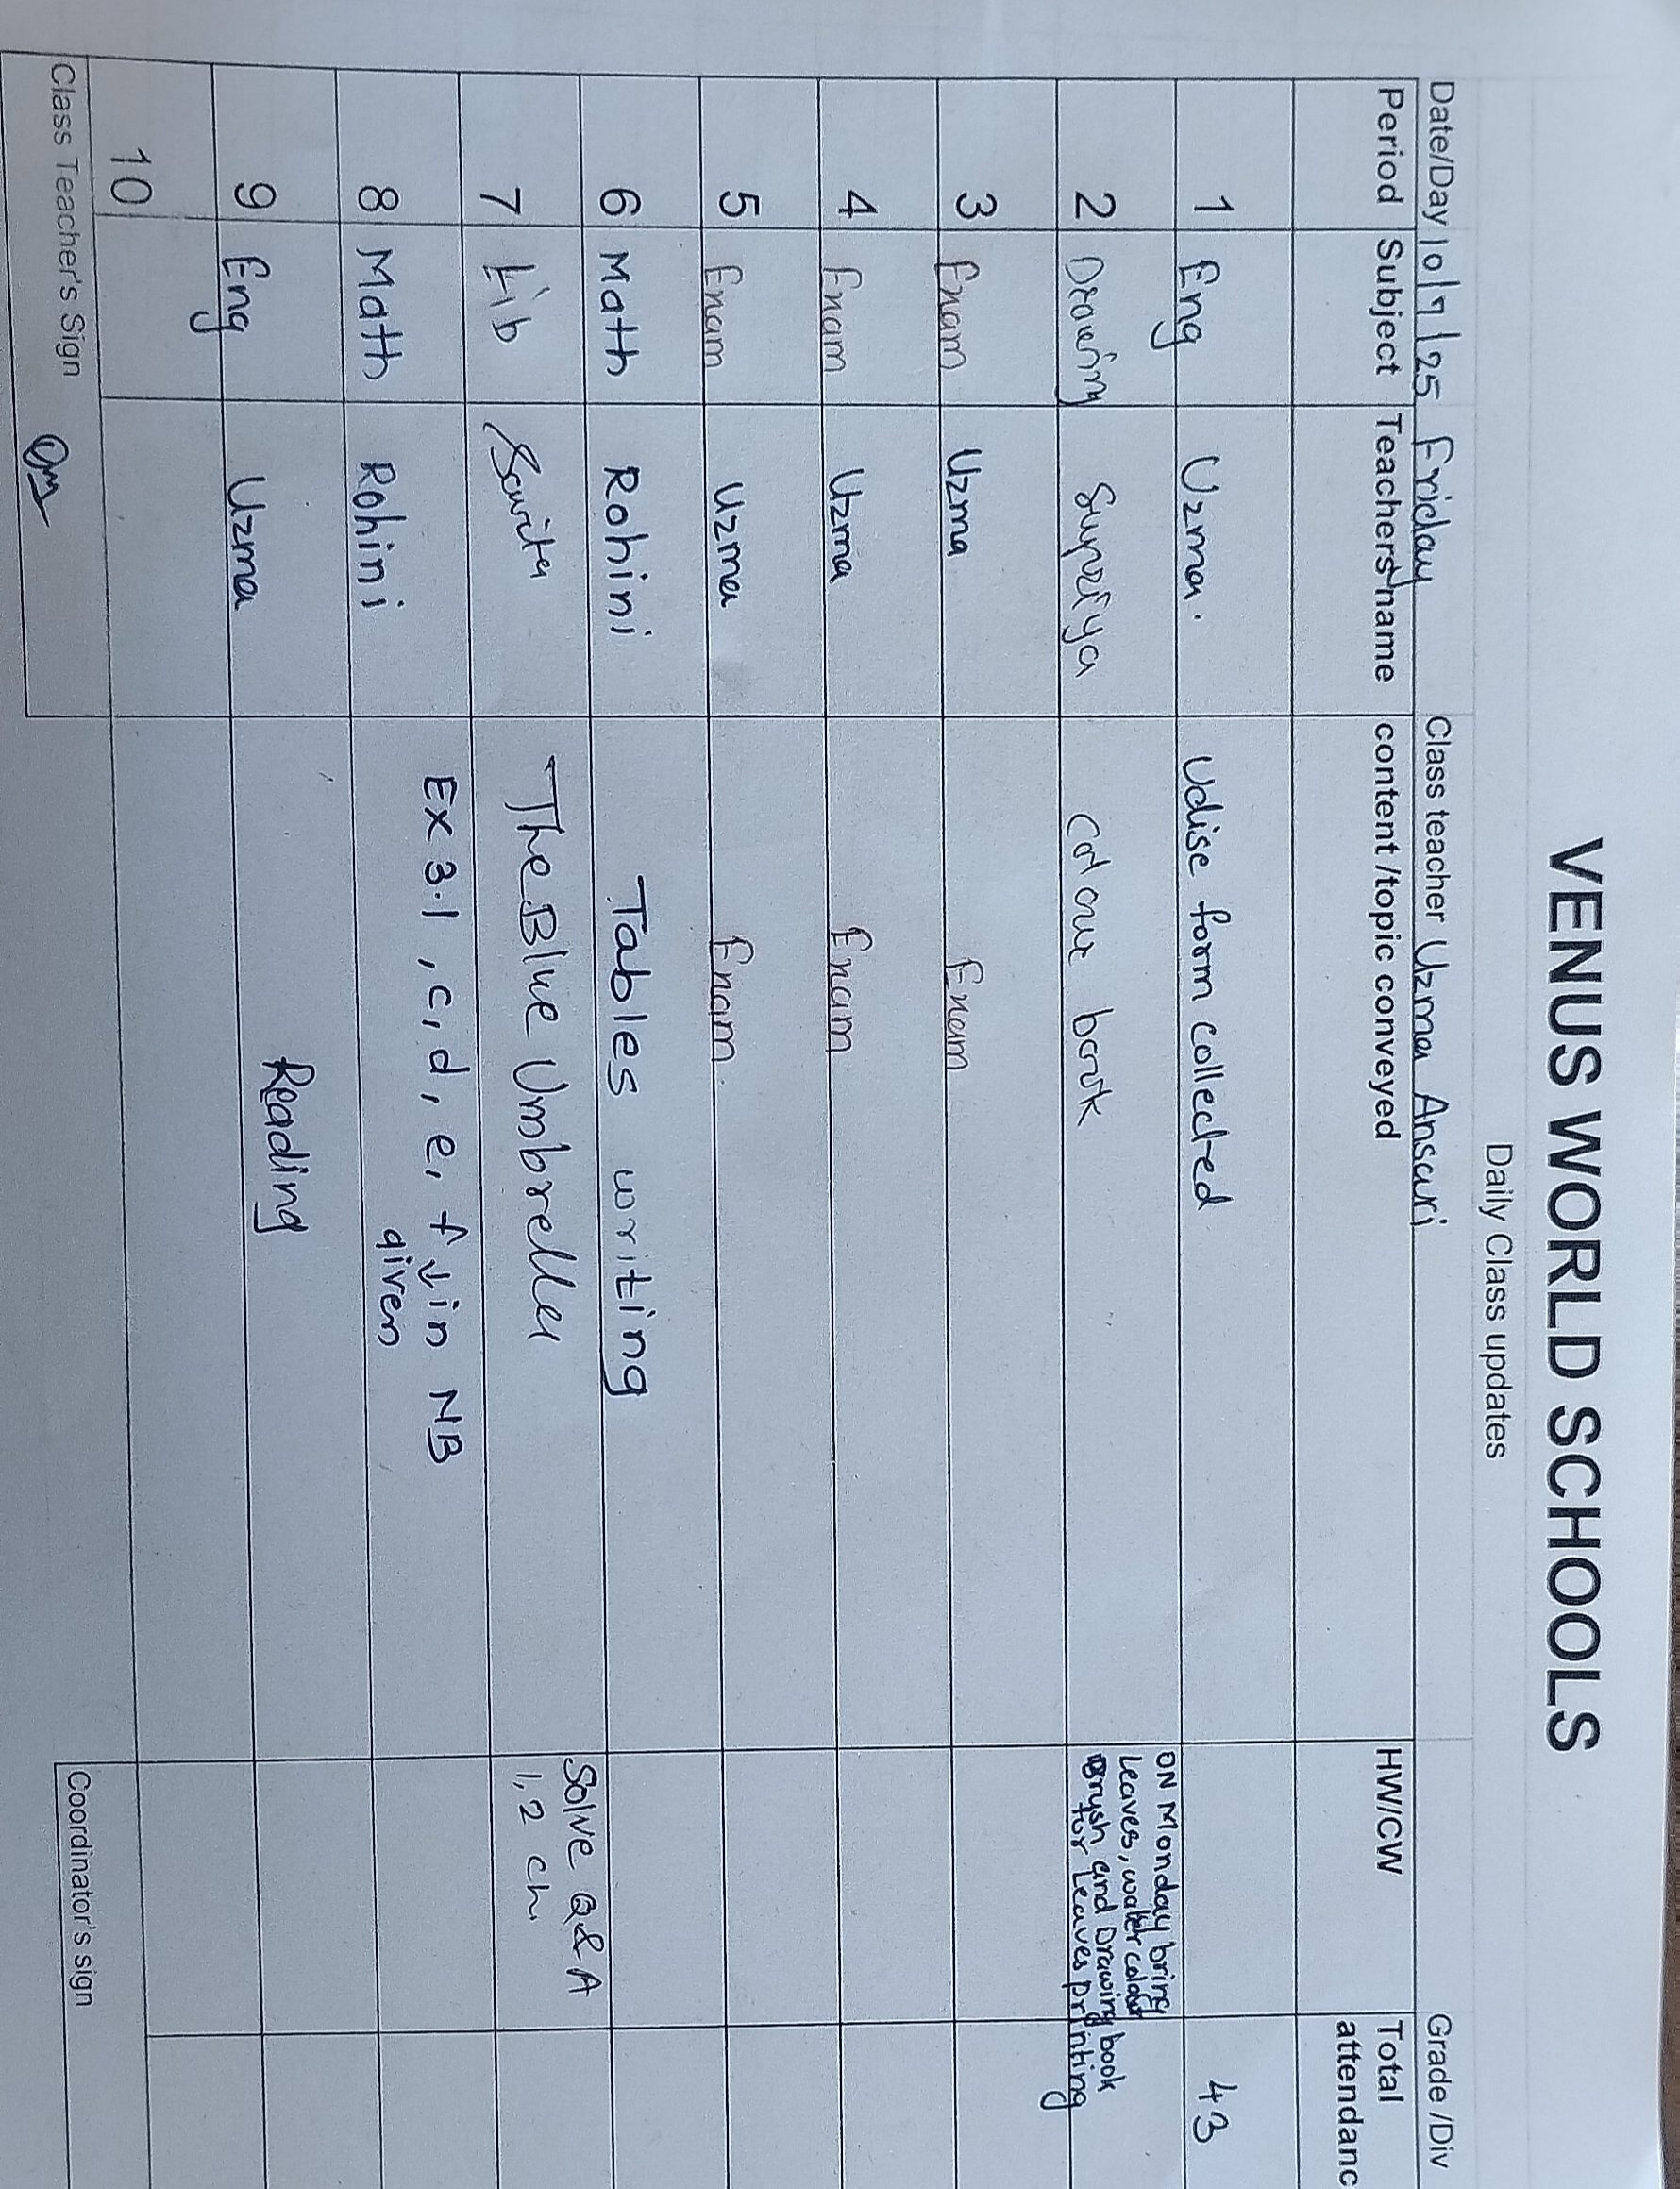 VENUS WORLD SCHOOLS
Daily Class updates
Date/Day 10/7/25 Friday Class teacher Uzma Ansari Grade /Div
Period Subject Teachers name content /topic conveyed HW/CW Total attendanc
1 Eng Uzma. Udise form collected 43
2 Drawing Supriya colour book ON Monday bring
Leaves, water colour
Brush and Drawing book
for Leaves printing
3 Enam Uzma Enam
4 Enam Uzma Enam
5 Enam Uzma Enam.
6 Math Rohini Tables writing
7 Lib Savita The Blue Umbrella Solve Q&A
1, 2 ch.
8 Math Rohini Ex 3.1, c, d, e, f in NB
given
9 Eng Uzma Reading
10
Class Teacher's Sign Coordinator's sign